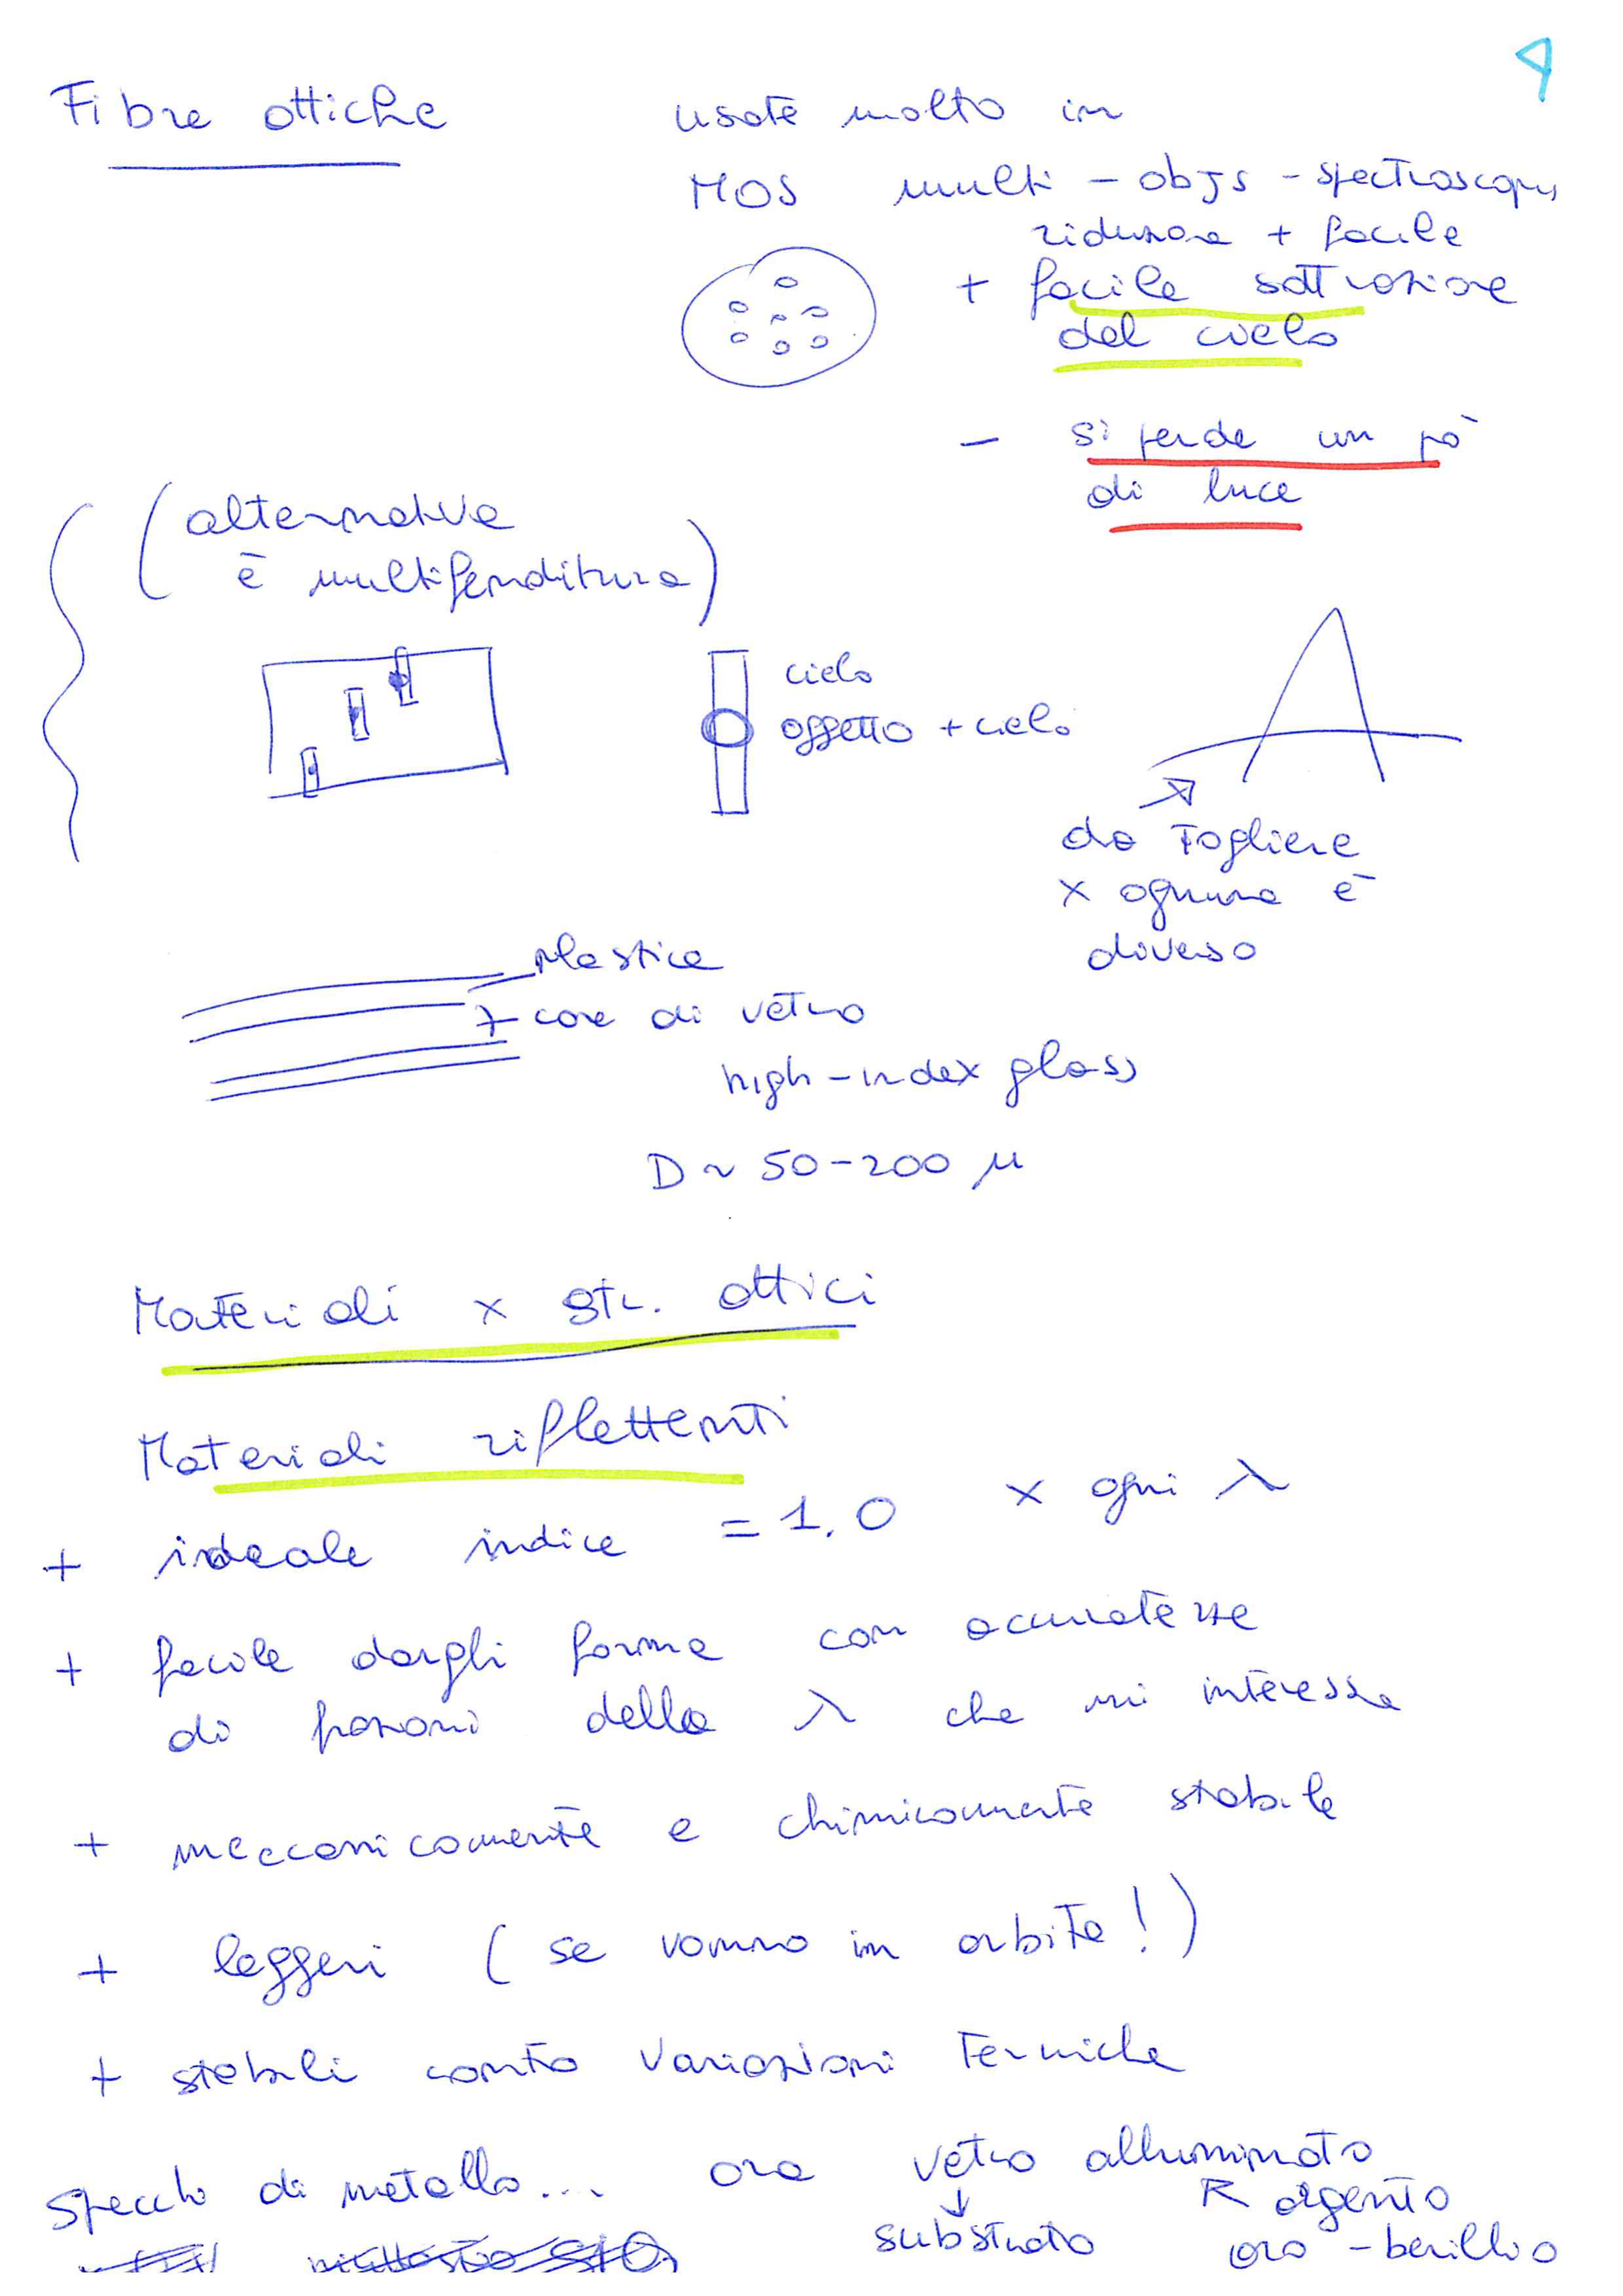 9
Fibre ottiche
usate molto in
MOS multi - objs - spectroscopy
riduzione + facile
+ facile sottrazione
del cielo
- si perde un pò
di luce
(alternativa
è multifenditura)
cielo
oggetto + cielo
da togliere
x ognuna è
diverso
plastica
core di vetro
high-index glass
D ~ 50-200 µ
Materiali x str. ottici
Materiali riflettenti
+ ideale indice = 1.0 x ogni λ
+ facile dargli forma con accuratezze
di frazioni della λ che mi interessa
+ meccanicamente e chimicamente stabile
+ leggeri (se vanno in orbita!)
+ stabili contro variazioni termiche
Specchi di metallo... ora vetro alluminato
↓
substrato
argento
oro - berillio